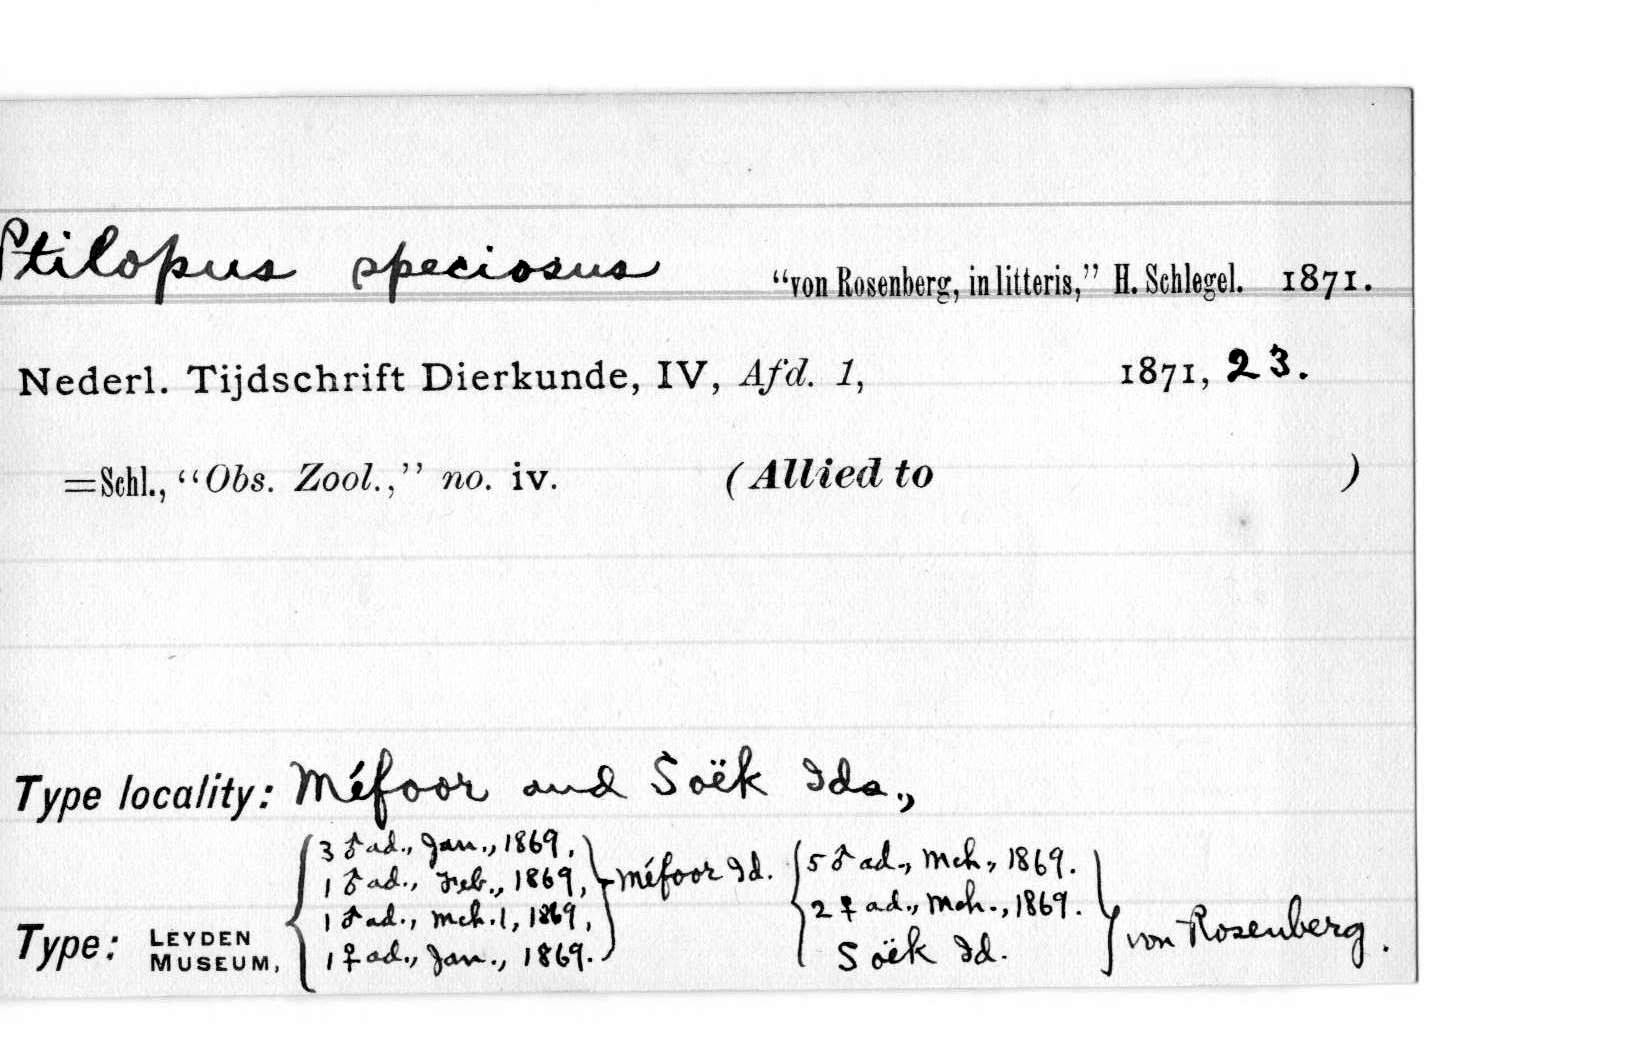 Ptilopus speciosus "von Rosenberg, in litteris," H. Schlegel. 1871.
Nederl. Tijdschrift Dierkunde, IV, Afd. 1, 1871, 23.
=Schl., "Obs. Zool.," no. iv. (Allied to )
Type locality: Méfoor and Soëk Ids.,
Type: LEYDEN MUSEUM,
3 ♂ ad., Jan., 1869,
1 ♂ ad., Feb., 1869,
1 ♂ ad., Mch. 1, 1869,
1 ♀ ad., Jan., 1869.
Méfoor Id.
5 ♂ ad., Mch., 1869.
2 ♀ ad., Mch., 1869.
Soëk Id.
von Rosenberg.